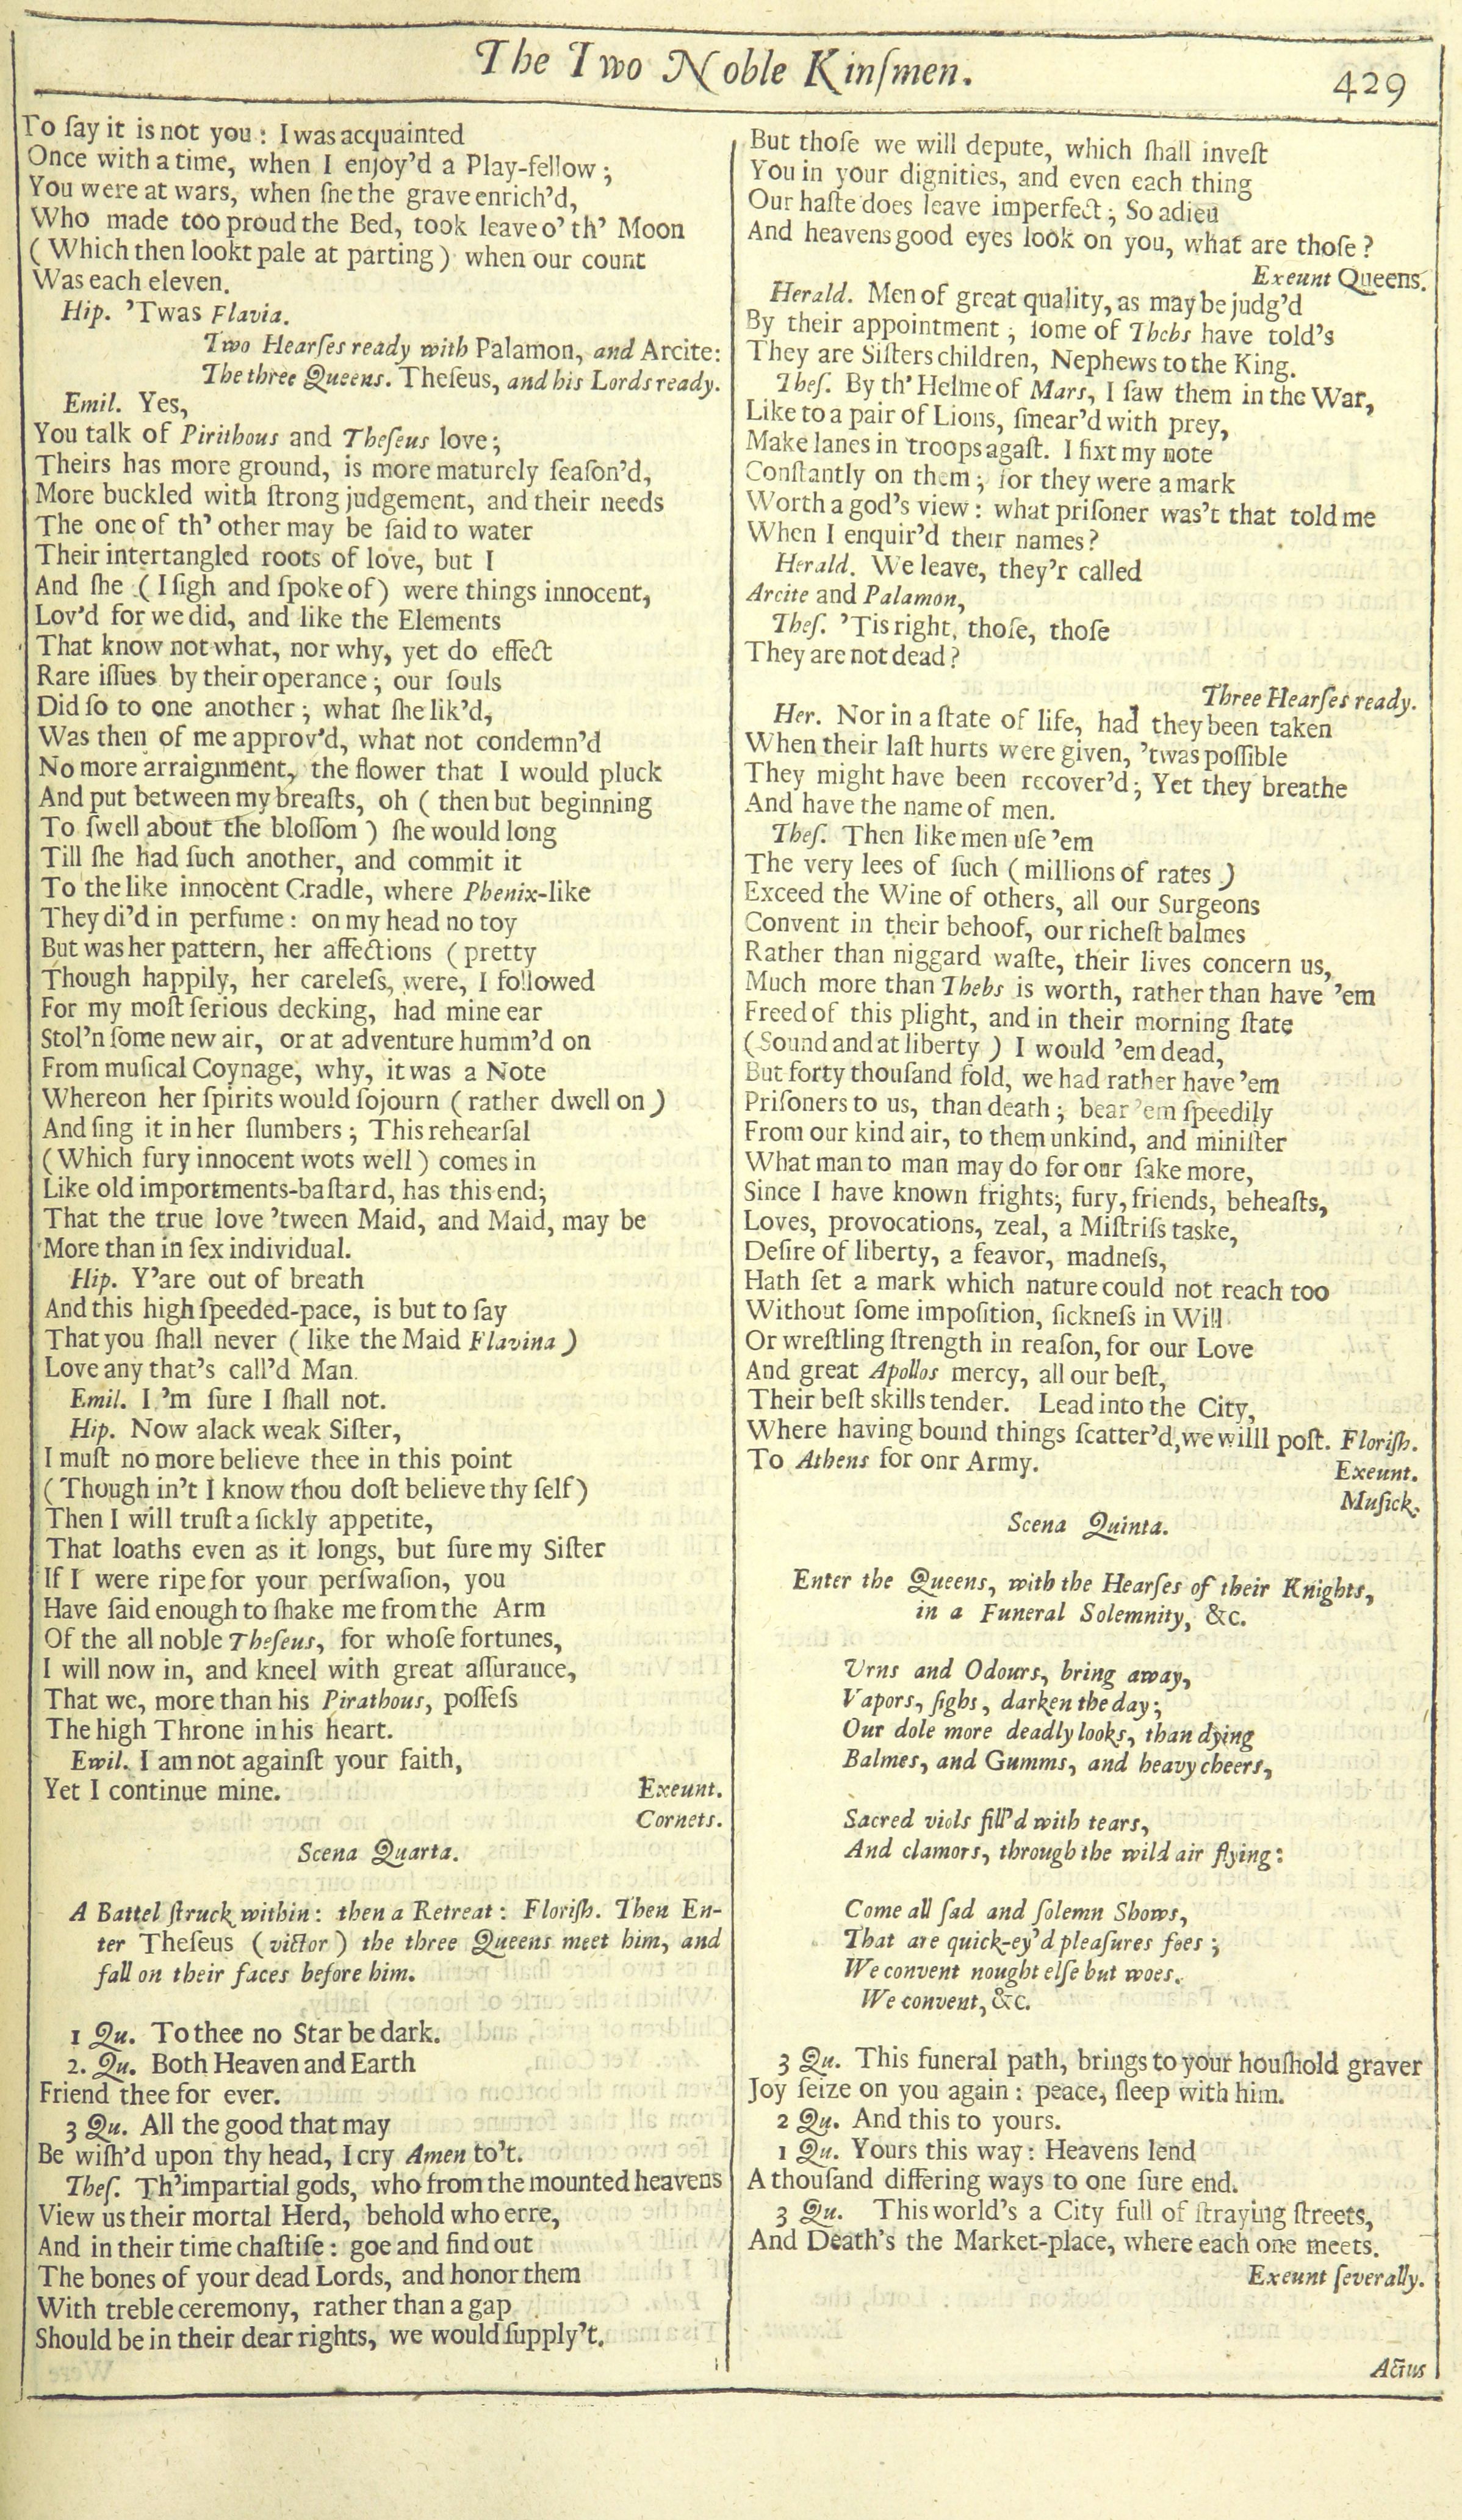 The Two Noble Kinſmen.
429
To ſay it is not you : I was acquainted
Once with a time, when I enjoy'd a Play-fellow ;
You were at wars, when ſne the grave enrich'd,
Who made too proud the Bed, took leave o' th' Moon
( Which then lookt pale at parting ) when our count
Was each eleven.
Hip. 'Twas Flavia.
Two Hearſes ready with Palamon, and Arcite:
The three Queens. Theſeus, and his Lords ready.
Emil. Yes,
You talk of Pirithous and Theſeus love ;
Theirs has more ground, is more maturely ſeaſon'd,
More buckled with ſtrong judgement, and their needs
The one of th' other may be ſaid to water
Their intertangled roots of love, but I
And ſhe ( I ſigh and ſpoke of ) were things innocent,
Lov'd for we did, and like the Elements
That know not what, nor why, yet do effect
Rare iſſues by their operance ; our ſouls
Did ſo to one another ; what ſhe lik'd,
Was then of me approv'd, what not condemn'd
No more arraignment, the flower that I would pluck
And put between my breaſts, oh ( then but beginning
To ſwell about the bloſſom ) ſhe would long
Till ſhe had ſuch another, and commit it
To the like innocent Cradle, where Phenix-like
They di'd in perfume : on my head no toy
But was her pattern, her affections ( pretty
Though happily, her careleſs, were, I followed
For my moſt ſerious decking, had mine ear
Stol'n ſome new air, or at adventure humm'd on
From muſical Coynage, why, it was a Note
Whereon her ſpirits would ſojourn ( rather dwell on )
And ſing it in her ſlumbers ; This rehearſal
( Which fury innocent wots well ) comes in
Like old importments-baſtard, has this end ;
That the true love 'tween Maid, and Maid, may be
More than in ſex individual.
Hip. Y'are out of breath
And this high ſpeeded-pace, is but to ſay
That you ſhall never ( like the Maid Flavina )
Love any that's call'd Man.
Emil. I 'm ſure I ſhall not.
Hip. Now alack weak Siſter,
I muſt no more believe thee in this point
( Though in't I know thou doſt believe thy ſelf )
Then I will truſt a ſickly appetite,
That loaths even as it longs, but ſure my Siſter
If I were ripe for your perſwaſion, you
Have ſaid enough to ſhake me from the Arm
Of the all noble Theſeus, for whoſe fortunes,
I will now in, and kneel with great aſſurauce,
That we, more than his Pirathous, poſſeſs
The high Throne in his heart.
Ewil. I am not againſt your faith,
Yet I continue mine. Exeunt.
Cornets.
Scena Quarta.
A Battel ſtruck within : then a Retreat : Floriſh. Then En-
ter Theſeus ( victor ) the three Queens meet him, and
fall on their faces before him.
1 Qu. To thee no Star be dark.
2. Qu. Both Heaven and Earth
Friend thee for ever.
3 Qu. All the good that may
Be wiſh'd upon thy head, I cry Amen to't.
Theſ. Th'impartial gods, who from the mounted heavens
View us their mortal Herd, behold who erre,
And in their time chaſtiſe : goe and find out
The bones of your dead Lords, and honor them
With treble ceremony, rather than a gap
Should be in their dear rights, we would ſupply't.
But thoſe we will depute, which ſhall inveſt
You in your dignities, and even each thing
Our haſte does leave imperfect ; So adieu
And heavens good eyes look on you, what are thoſe ?
Exeunt Queens.
Herald. Men of great quality, as may be judg'd
By their appointment ; ſome of Thebs have told's
They are Siſters children, Nephews to the King.
Theſ. By th' Helme of Mars, I ſaw them in the War,
Like to a pair of Lions, ſmear'd with prey,
Make lanes in troops agaſt. I fixt my note
Conſtantly on them ; for they were a mark
Worth a god's view : what priſoner was't that told me
When I enquir'd their names ?
Herald. We leave, they'r called
Arcite and Palamon,
Theſ. 'Tis right, thoſe, thoſe
They are not dead ?
Three Hearſes ready.
Her. Nor in a ſtate of life, had they been taken
When their laſt hurts were given, 'twas poſſible
They might have been recover'd ; Yet they breathe
And have the name of men.
Theſ. Then like men uſe 'em
The very lees of ſuch ( millions of rates )
Exceed the Wine of others, all our Surgeons
Convent in their behoof, our richeſt balmes
Rather than niggard waſte, their lives concern us,
Much more than Thebs is worth, rather than have 'em
Freed of this plight, and in their morning ſtate
( Sound and at liberty ) I would 'em dead,
But forty thouſand fold, we had rather have 'em
Priſoners to us, than death ; bear 'em ſpeedily
From our kind air, to them unkind, and miniſter
What man to man may do for our ſake more,
Since I have known frights, fury, friends, beheaſts,
Loves, provocations, zeal, a Miſtriſs taske,
Deſire of liberty, a feavor, madneſs,
Hath ſet a mark which nature could not reach too
Without ſome impoſition, ſickneſs in Will
Or wreſtling ſtrength in reaſon, for our Love
And great Apollos mercy, all our beſt,
Their beſt skills tender. Lead into the City,
Where having bound things ſcatter'd, we willl poſt. Floriſh.
To Athens for onr Army. Exeunt.
Muſick.
Scena Quinta.
Enter the Queens, with the Hearſes of their Knights,
in a Funeral Solemnity, &c.
Urns and Odours, bring away,
Vapors, ſighs, darken the day ;
Our dole more deadly looks, than dying
Balmes, and Gumms, and heavy cheers,
Sacred viols fill'd with tears,
And clamors, through the wild air flying :
Come all ſad and ſolemn Shows,
That are quick-ey'd pleaſures foes ;
We convent nought elſe but woes.
We convent, &c.
3 Qu. This funeral path, brings to your houſhold graver
Joy ſeize on you again : peace, ſleep with him.
2 Qu. And this to yours.
1 Qu. Yours this way : Heavens lend
A thouſand differing ways to one ſure end.
3 Qu. This world's a City full of ſtraying ſtreets,
And Death's the Market-place, where each one meets.
Exeunt ſeverally.
Actus